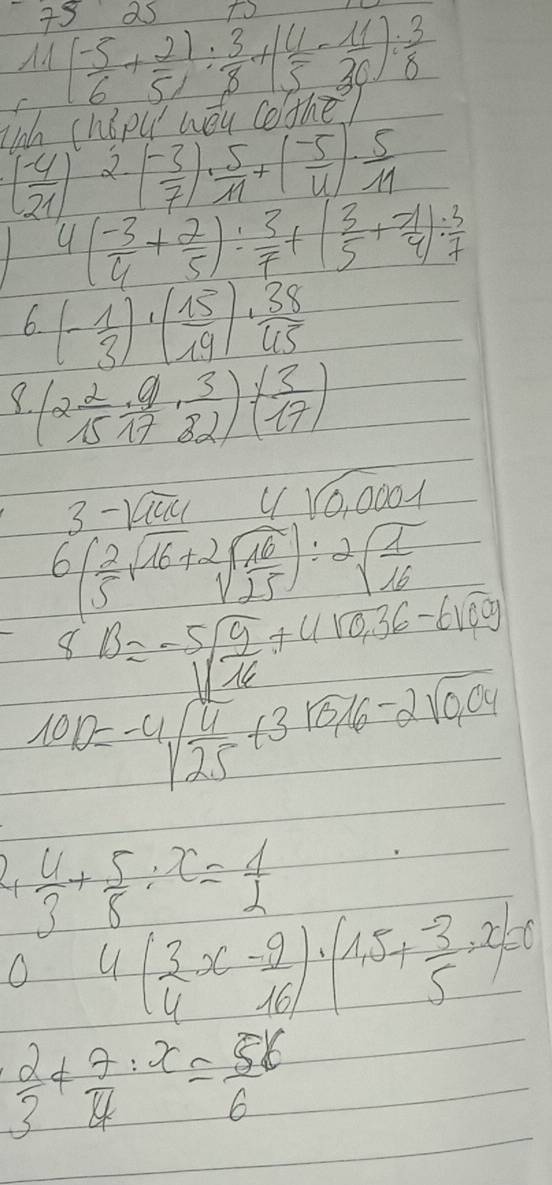 75 25 75
11 (-5/6 + 2/5) : 3/8 + (4/5 - 11/30) : 3/8
(-4/21) 2. (-3/7) . 5/11 + (-5/4) . 5/11
4 (-3/4 + 2/5) : 3/7 + (3/5 + -1/4) : 3/7
6. (-1/3) . (15/19) . 38/45
8. (2 2/15 . 9/17 . 3/32) : (3/17)
3 -√144 4 √0,0001
6 (2/5 √16 + 2 √16/25) : 2 √1/16
8 B = -5 √9/16 + 4 √0,36 - 6 √0,09
10 D = -4 √4/25 + 3 √0,16 - 2 √0,04
2, 4/3 + 5/8 : x = 1/2
0 4 (3/4 x - 9/16) . (1,5 + -3/5 : x) = 0
2/3 + 7/4 : x = 5/6